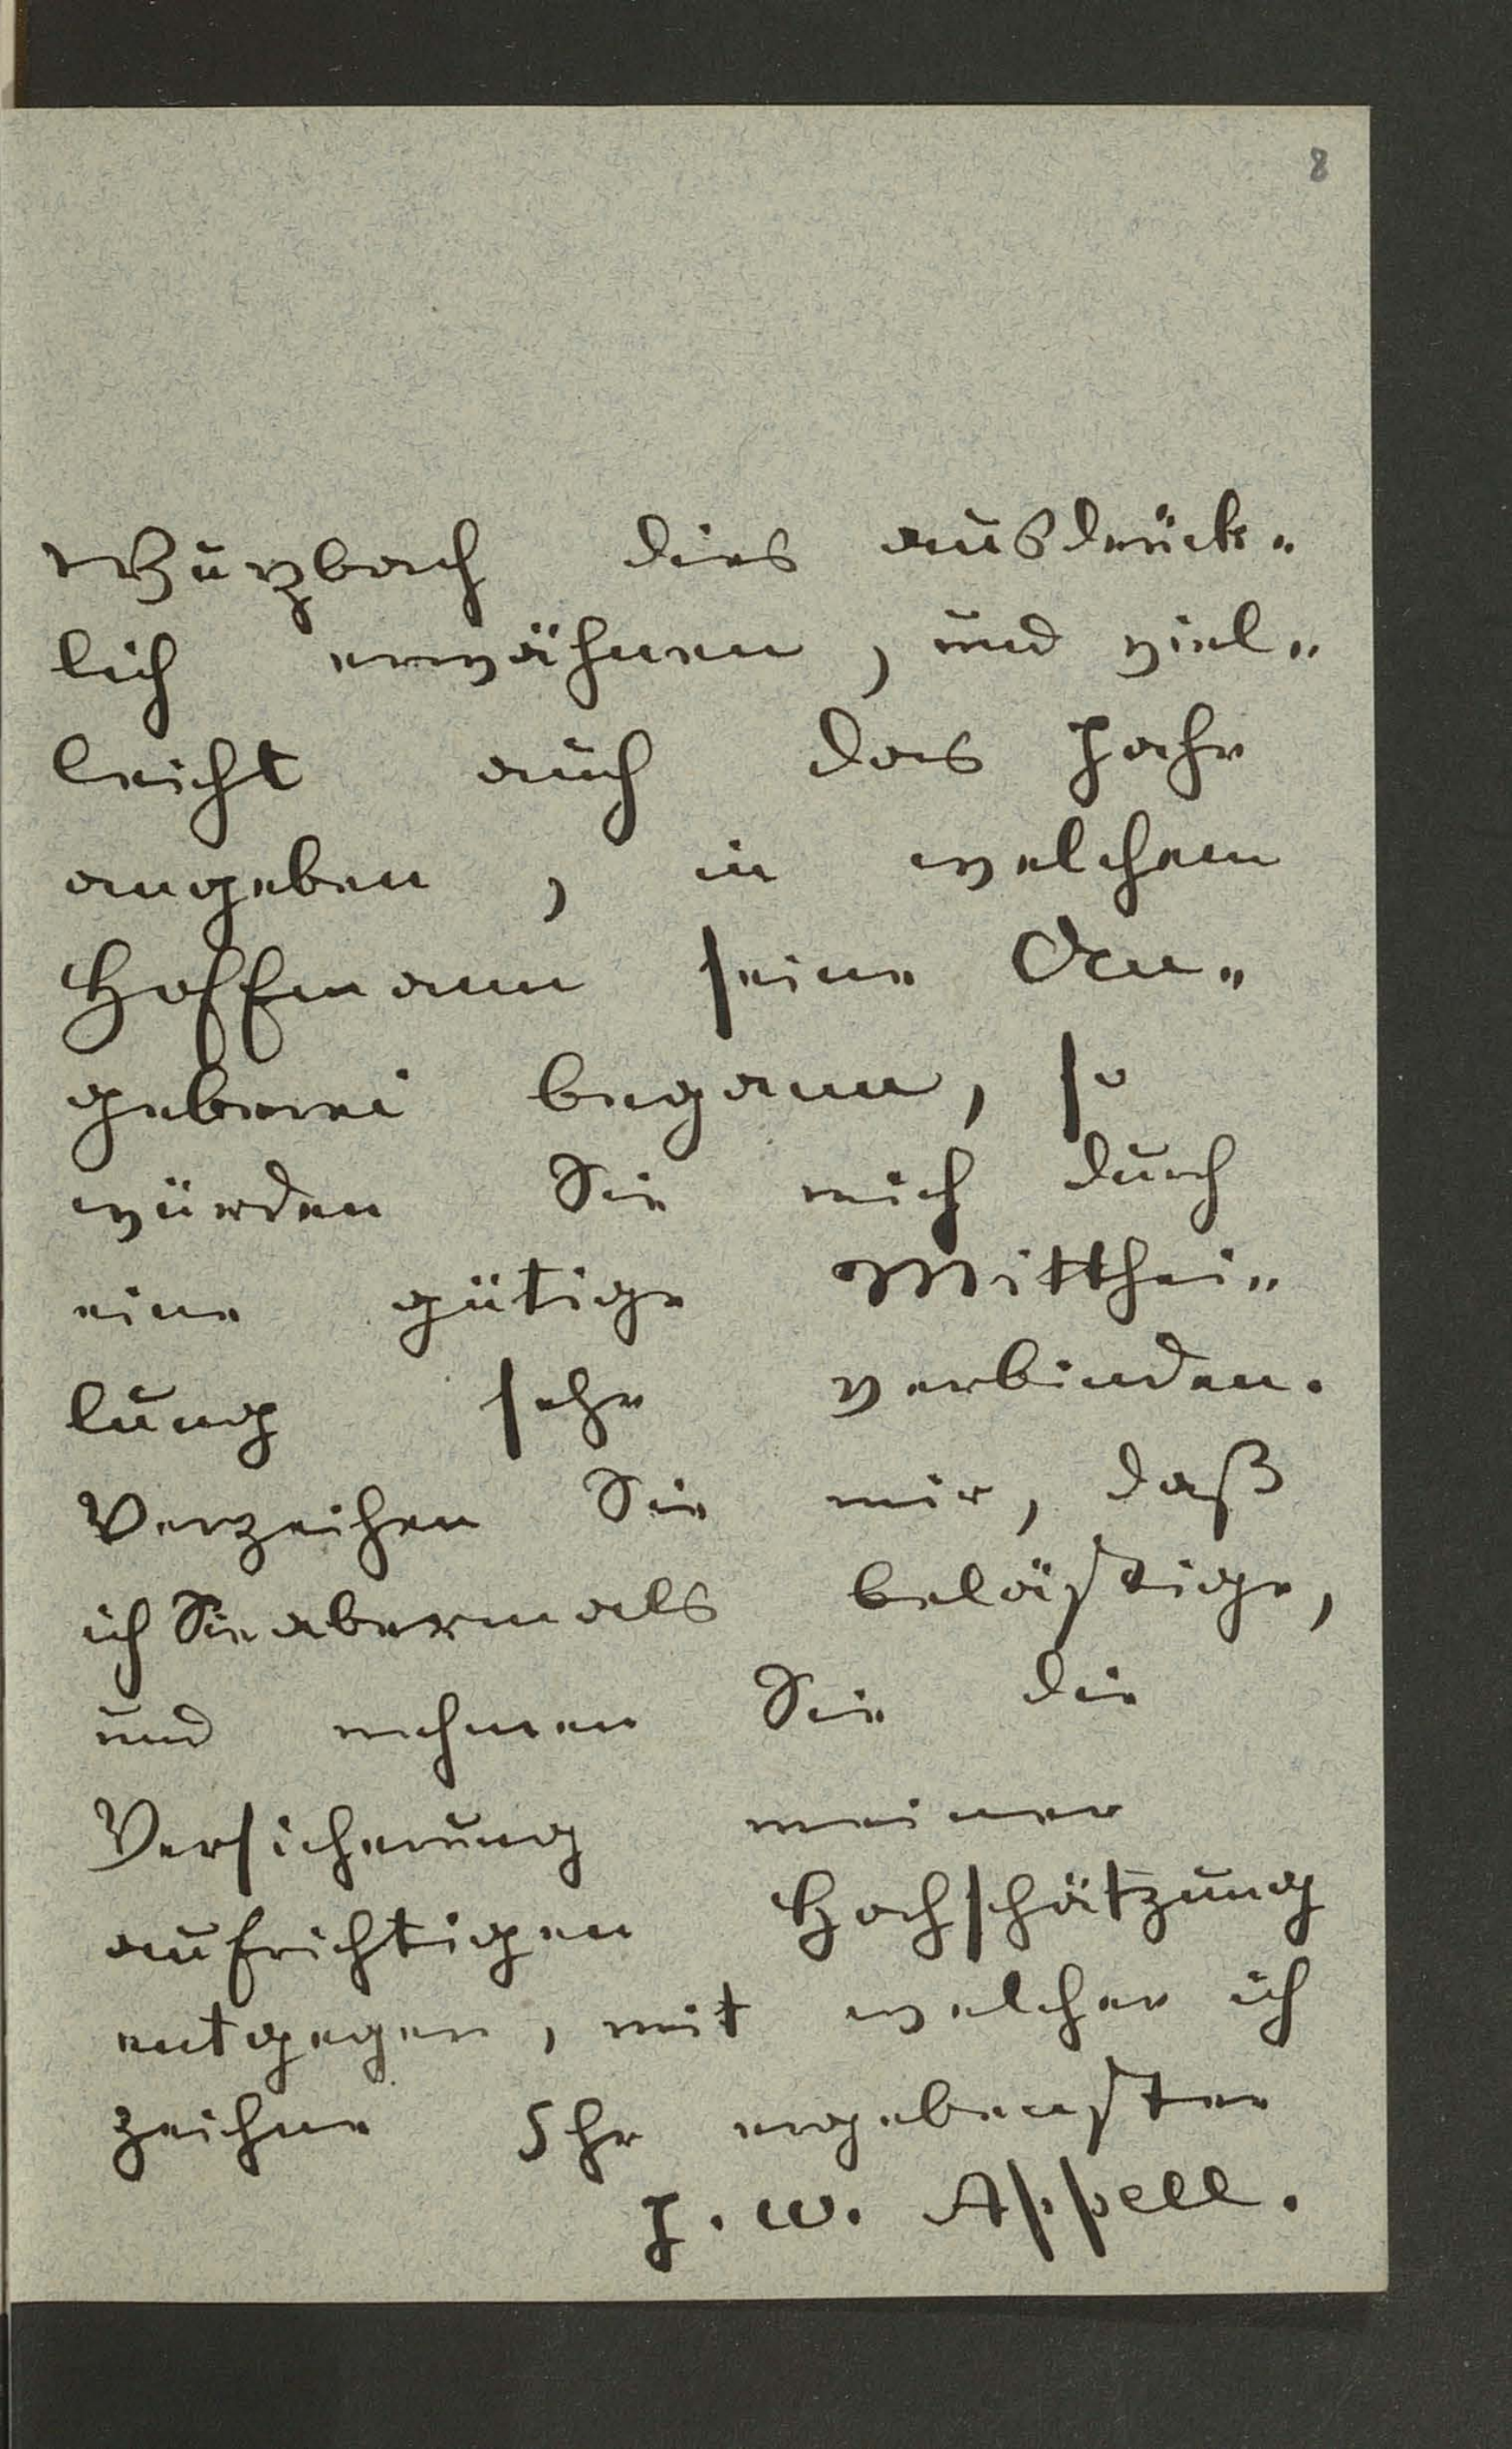 8
Wurzbach dies ausdrück„
lich erwähnen, und viel„
leicht auch das Jahr
angeben, in welchem
Hoffmann seine An„
geberei begann, so
würden Sie mich durch
eine gütige Mitthei„
lung sehr verbinden.
Verzeihen Sie mir, daß
ich Sie abermals belästige,
und nehmen Sie die
Versicherung meiner
aufrichtigen Hochschätzung
entgegen, mit welcher ich
zeichne Ihr ergebenster
J. W. Appell.